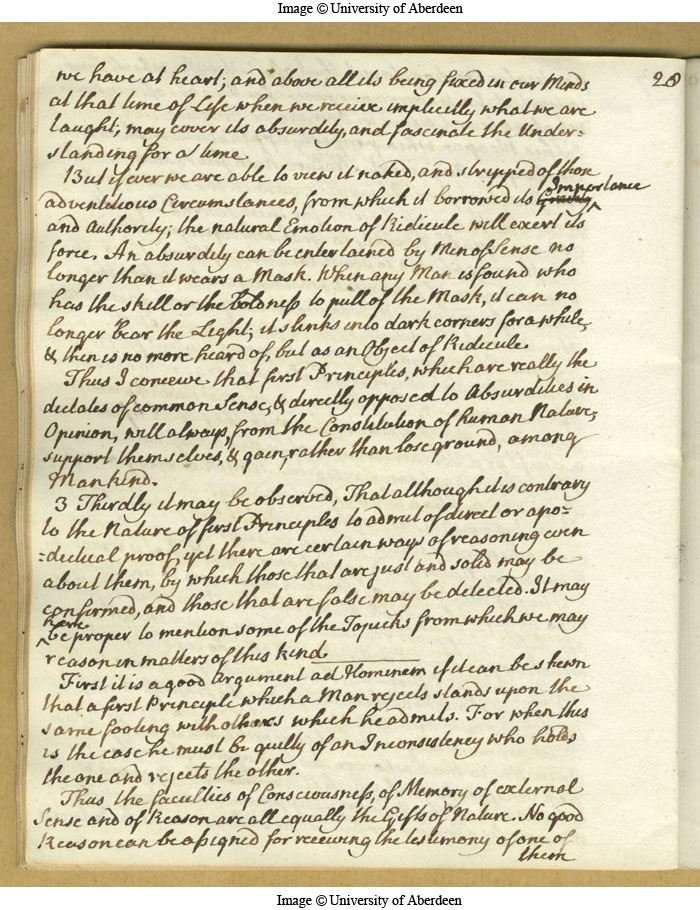 Image © University of Aberdeen
28
we have at heart; and above all its being fixed in our Minds
at that time of Life when we receive implicitly what we are
taught, may cover its absurdity, and fascinate the Under=
standing for a time
But if ever we are able to view it naked, and stripped of those
Importance
adventitious Circumstances, from which it borrowed its Gravity ^
and Authority; the natural Emotion of Ridicule will exert its
force. An absurdity can be entertained by Men of Sense no
longer than it wears a Mask. When any Man is found who
has the skill or the boldness to pull of the Mask, it can no
longer bear the Light; it slinks into dark corners for a while,
& then is no more heard of, but as an Object of Ridicule.
Thus I conceive that first Principles, which are really the
dictates of common Sense, & directly opposed to Absurdities in
Opinion, will always, from the Constitution of human Nature,
support themselves, & gain, rather than lose ground, among
Mankind.
3 Thirdly it may be observed, That although it is contrary
to the Nature of first Principles to admit of direct or apo=
=dictical proof, yet there are certain ways of reasoning even
about them, by which those that are just and solid may be
confirmed, and those that are false may be detected. It may
here
^ be proper to mention some of the Topicks from which we may
reason in matters of this kind
First it is a good argument ad Hominem if it can be shewn
that a first Principle which a Man rejects stands upon the
same footing with others which he admits. For when this
is the case he must be guilty of an Inconsistency who holds
the one and rejects the other.
Thus the faculties of Consciousness, of Memory of external
Sense and of Reason are all equally the Gifts of Nature. No good
Reason can be assigned for receiving the testimony of one of
them
Image © University of Aberdeen